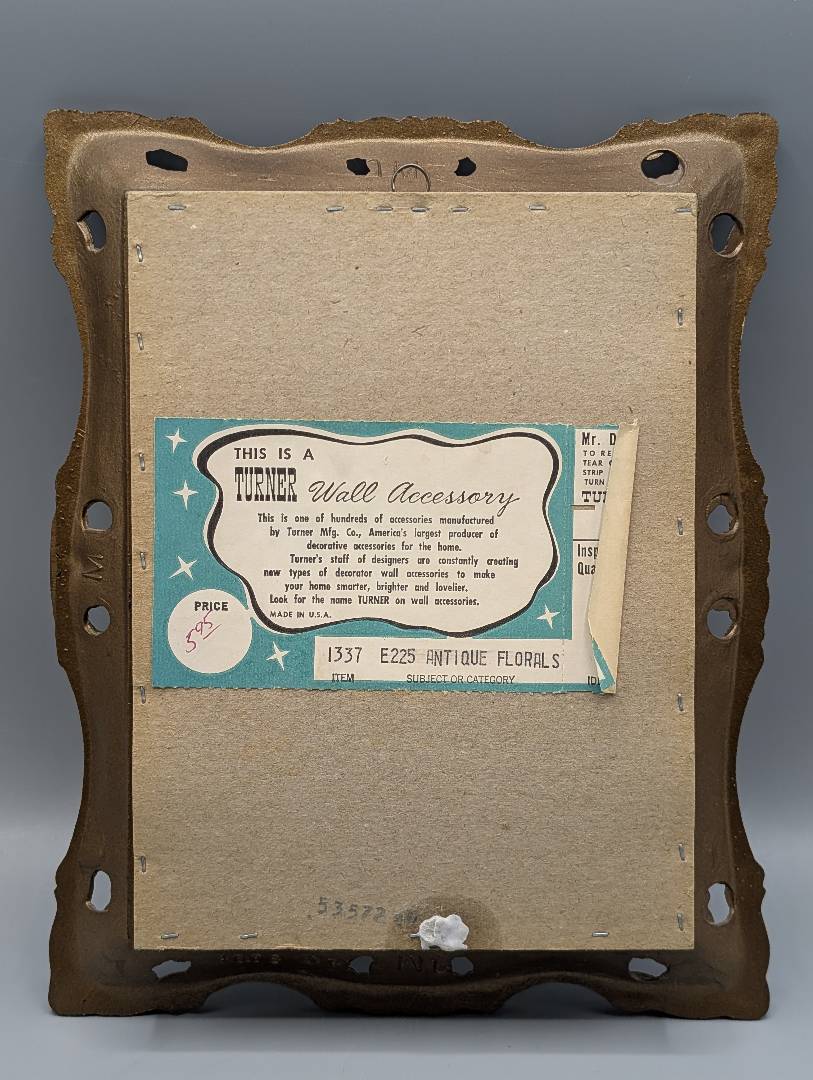 THIS IS A
TURNER Wall Accessory
This is one of hundreds of accessories manufactured
by Turner Mfg. Co., America's largest producer of
decorative accessories for the home.
Turner's staff of designers are constantly creating
new types of decorator wall accessories to make
your home smarter, brighter and lovelier.
Look for the name TURNER on wall accessories.
MADE IN U.S.A.
PRICE
5.95
1337 E225 ANTIQUE FLORALS
ITEM SUBJECT OR CATEGORY
Mr. D
TO RE
TEAR
STRIP
TURN
TU
Insp
Qua
ID
53572
M